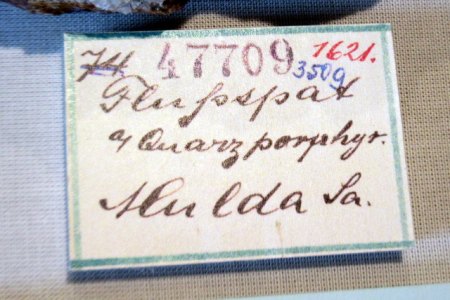 74 47709 1621.
350g
Flußspat
a Quarzporphyr.
Mulda Sa.